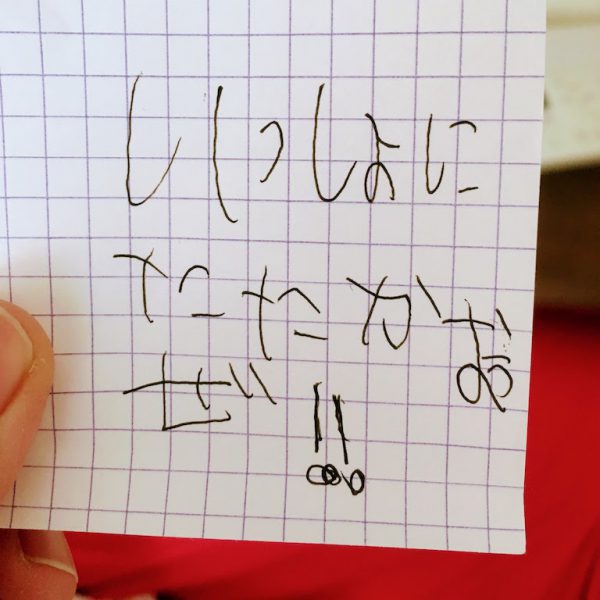 いっしょに
たたかお
ぜ!!